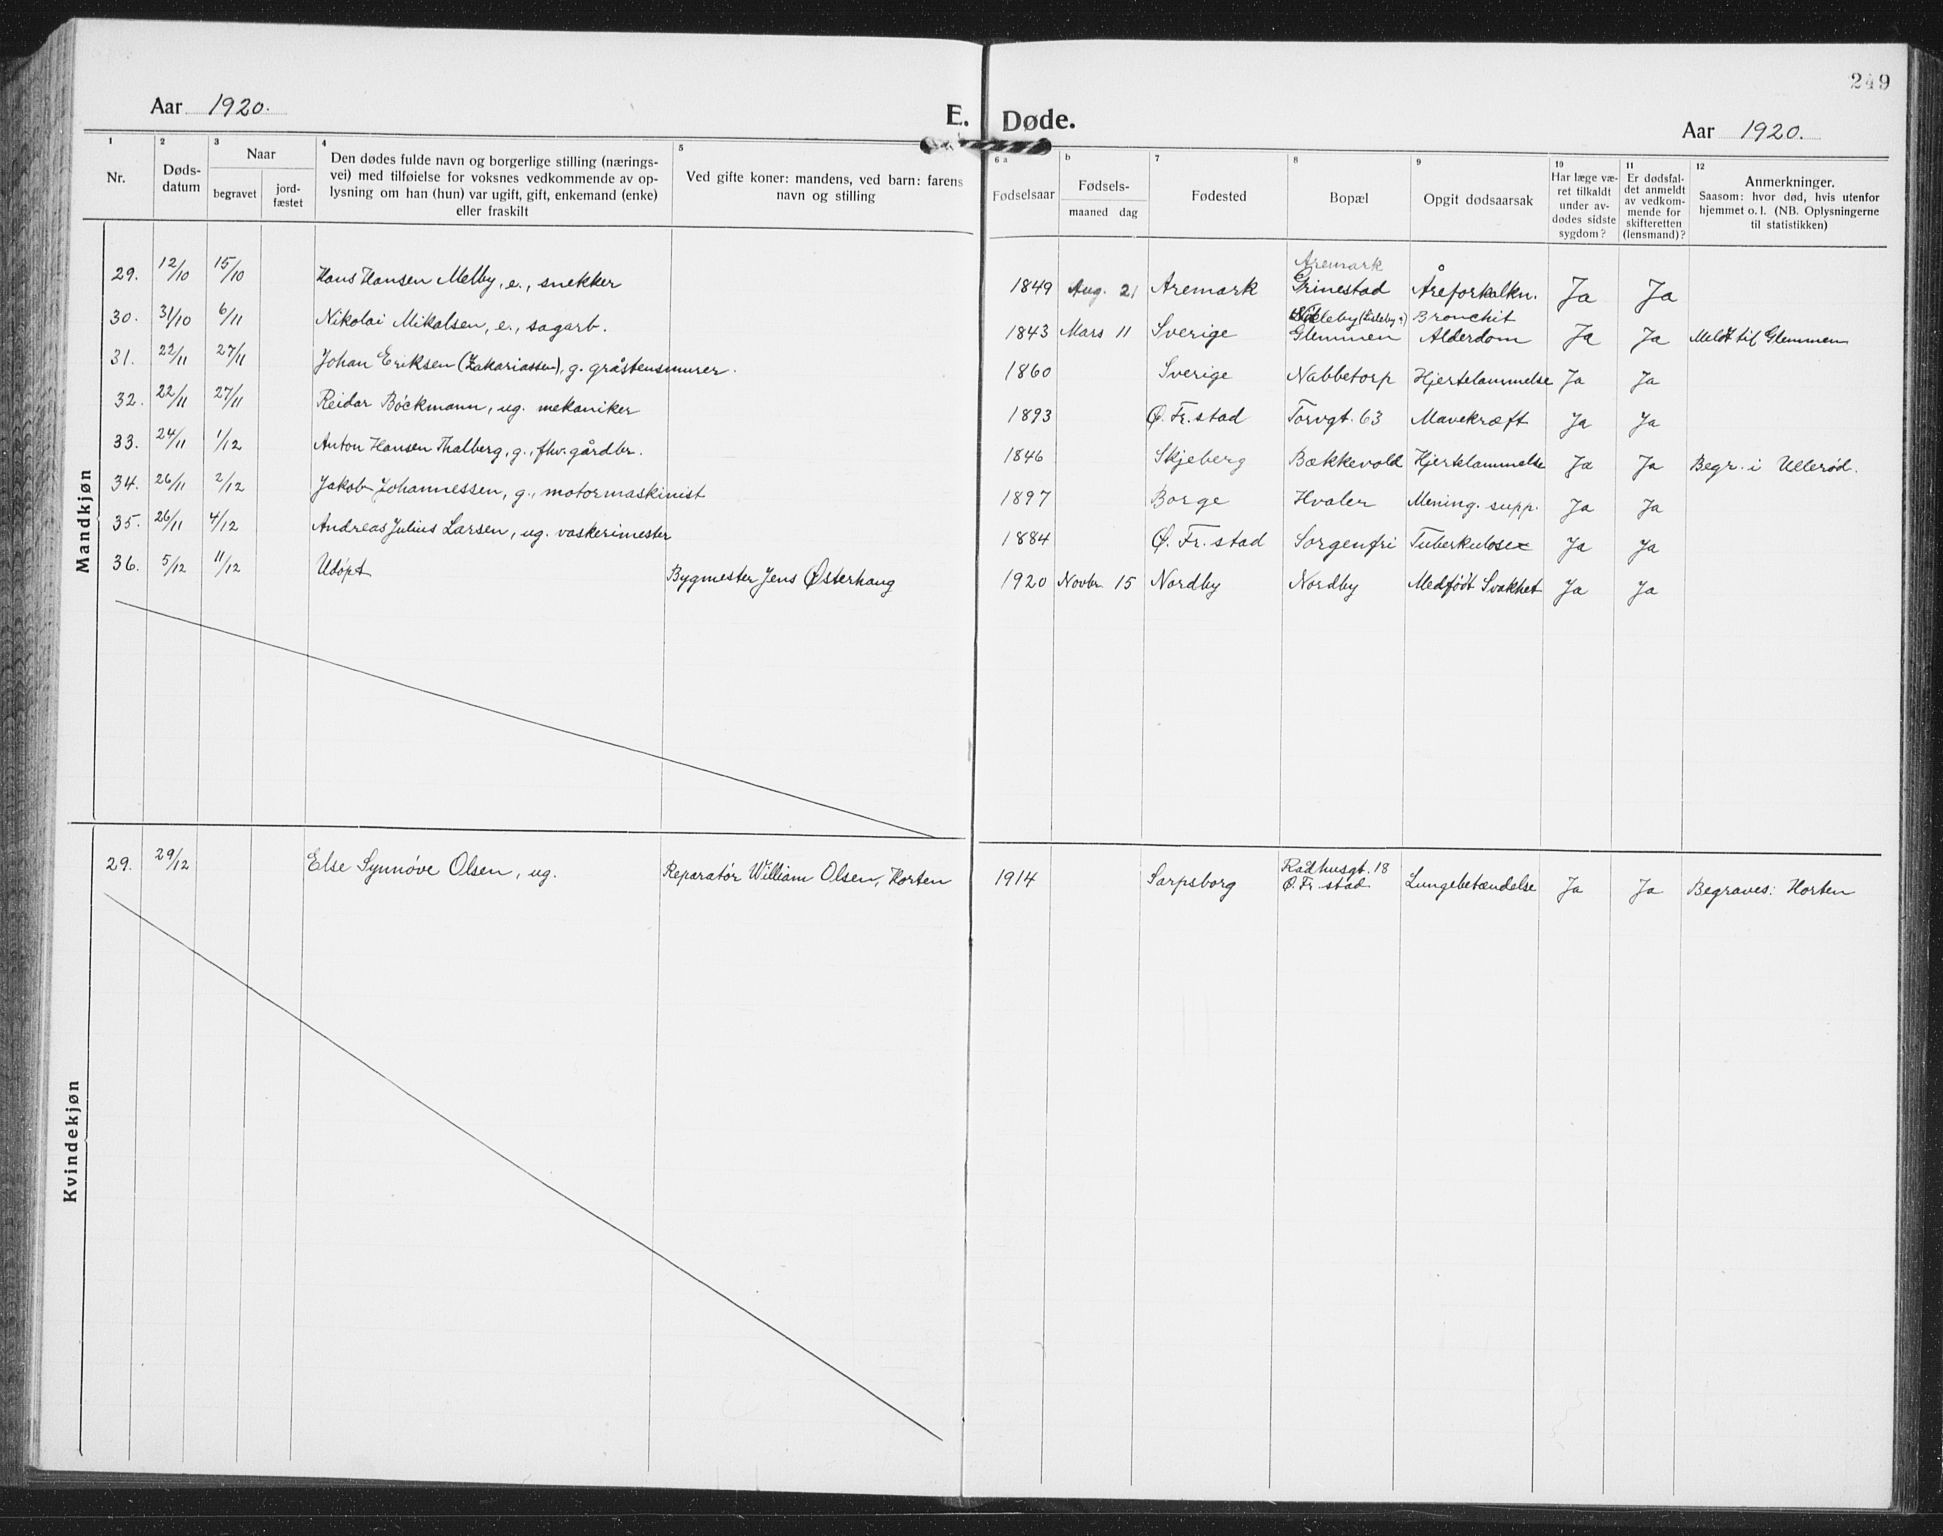 249
Aar 1920.
E. Døde.
Aar 1920.
1 2 3 4 5 6 a b 7 8 9 10 11 12
Nr.
Døds-
datum
Naar
begravet
jord-
fæstet
Den dødes fulde navn og borgerlige stilling (nærings-
vei) med tilføielse for voksnes vedkommende av op-
lysning om han (hun) var ugift, gift, enkemand (enke)
eller fraskilt
Ved gifte koner: mandens, ved barn: farens
navn og stilling
Fødselsaar
Fødsels-
maaned dag
Fødested
Bopæl
Opgit dødsaarsak
Har læge væ-
ret tilkaldt
under av-
dødes sidste
sygdom?
Er dødsfal-
det anmeldt
av vedkom-
mende for
skifteretten
(lensmand)?
Anmerkninger.
Saasom: hvor død, hvis utenfor
hjemmet o. l. (NB. Oplysningerne
til statistikken)
Mandkjøn
Aremark
29. 12/10 15/10 Hans Hansen Melby, e., snekker 1849 Aug. 21 Aremark Grinestad Åreforkalkn. Ja Ja
(Lisleby?) Bronchit
30. 31/10 6/11 Nikolai Mikalsen, e., sagarb. 1843 Mars 11 Sverige Glemmen Alderdom Ja Ja Meldt til Glemmen
31. 22/11 27/11 Johan Eriksen (Zakariassen), g. gråstensmurer. 1860 Sverige Nabbetorp Hjertelammelse Ja Ja
32. 22/11 27/11 Reidar Bøckmann, ug. mekaniker 1893 Ø. Fr. stad Torvgt. 63 Mavekræft Ja Ja
33. 24/11 1/12 Anton Hansen Thalberg, g., fhv. gårdbr. 1846 Skjeberg Bækkevold Hjertelammelse Ja Ja Begr. i Ullerød.
34. 26/11 2/12 Jakob Johannessen, g., motormaskinist 1897 Borge Hvaler Mening. supp. Ja Ja
35. 26/11 4/12 Andreas Julius Larsen, ug. vaskerimester 1884 Ø. Fr. stad Sorgenfri Tuberkulose Ja Ja
36. 5/12 11/12 Udøpt Bygmester Jens Østerhaug 1920 Novbr. 15 Nordby Nordby Medfødt Svakhet Ja Ja
Kvindekjøn
Rådhusgt. 18
29. 29/12 Else Synnøve Olsen, ug. Reparatør William Olsen, Horten 1914 Sarpsborg Ø. Fr. stad Lungebetændelse Ja Ja Begraves: Horten